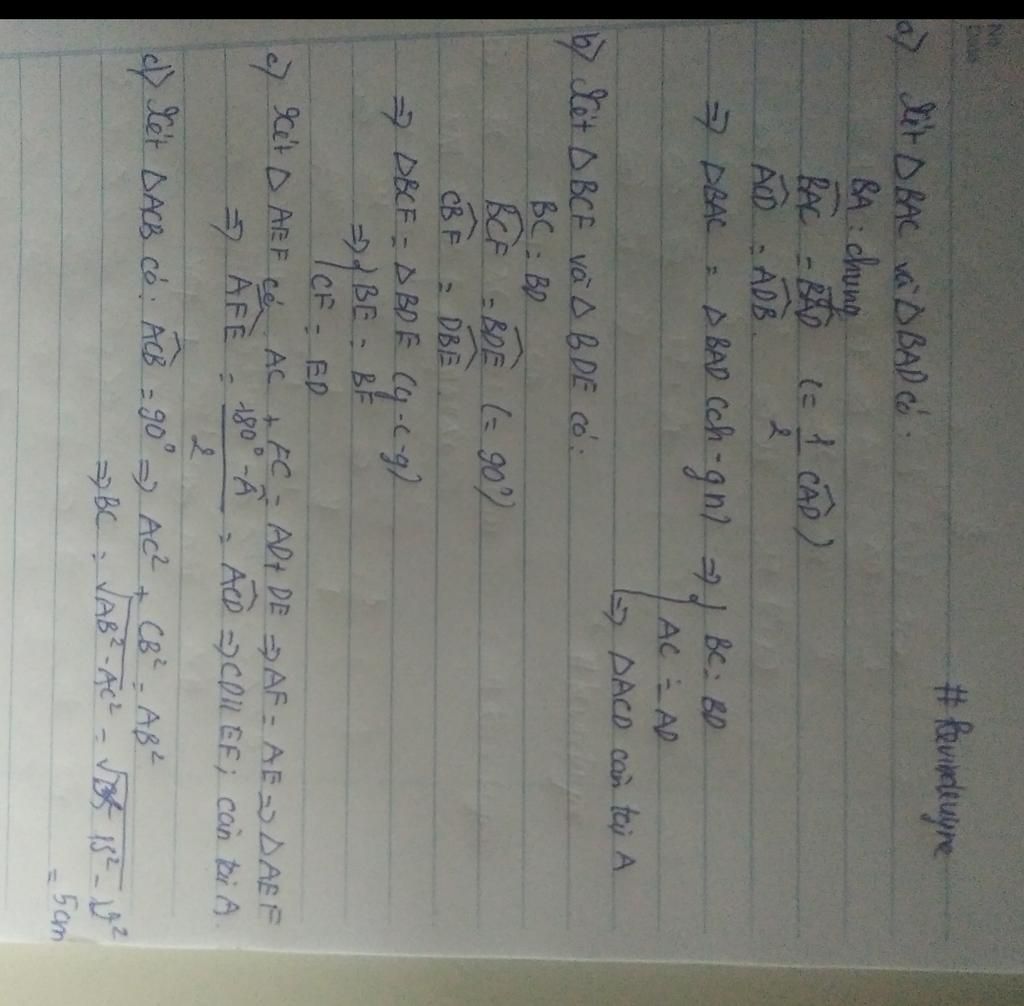 # Kevindeuyne
a) Xét ΔBAC và ΔBAD có:
BA: chung
BAC = BAD (= 1/2 CAD)
ACD = ADB.
=> ΔBAC = ΔBAD (ch-gn) => { BC = BD
AC = AD
=> ΔACD cân tại A
b) Xét ΔBCF và ΔBDE có:
BC = BD
BCF = BDE (= 90°)
CBF = DBE
=> ΔBCF = ΔBDE (g-c-g)
=> { BE = BF
CF = ED
c) Xét Δ AEF có AC + FC = AD + DE => AF = AE => ΔAEF
=> AFE = 180° - A / 2 = ACD => CD // EF; cân tại A.
d) Xét ΔACB có: ACB = 90° => AC² + CB² = AB²
=> BC = √AB² - AC² = √ 13² - 12²
= 5cm